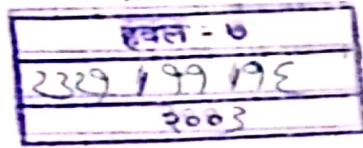 हवल - ७
२३२१ / ११ / १६
२००३